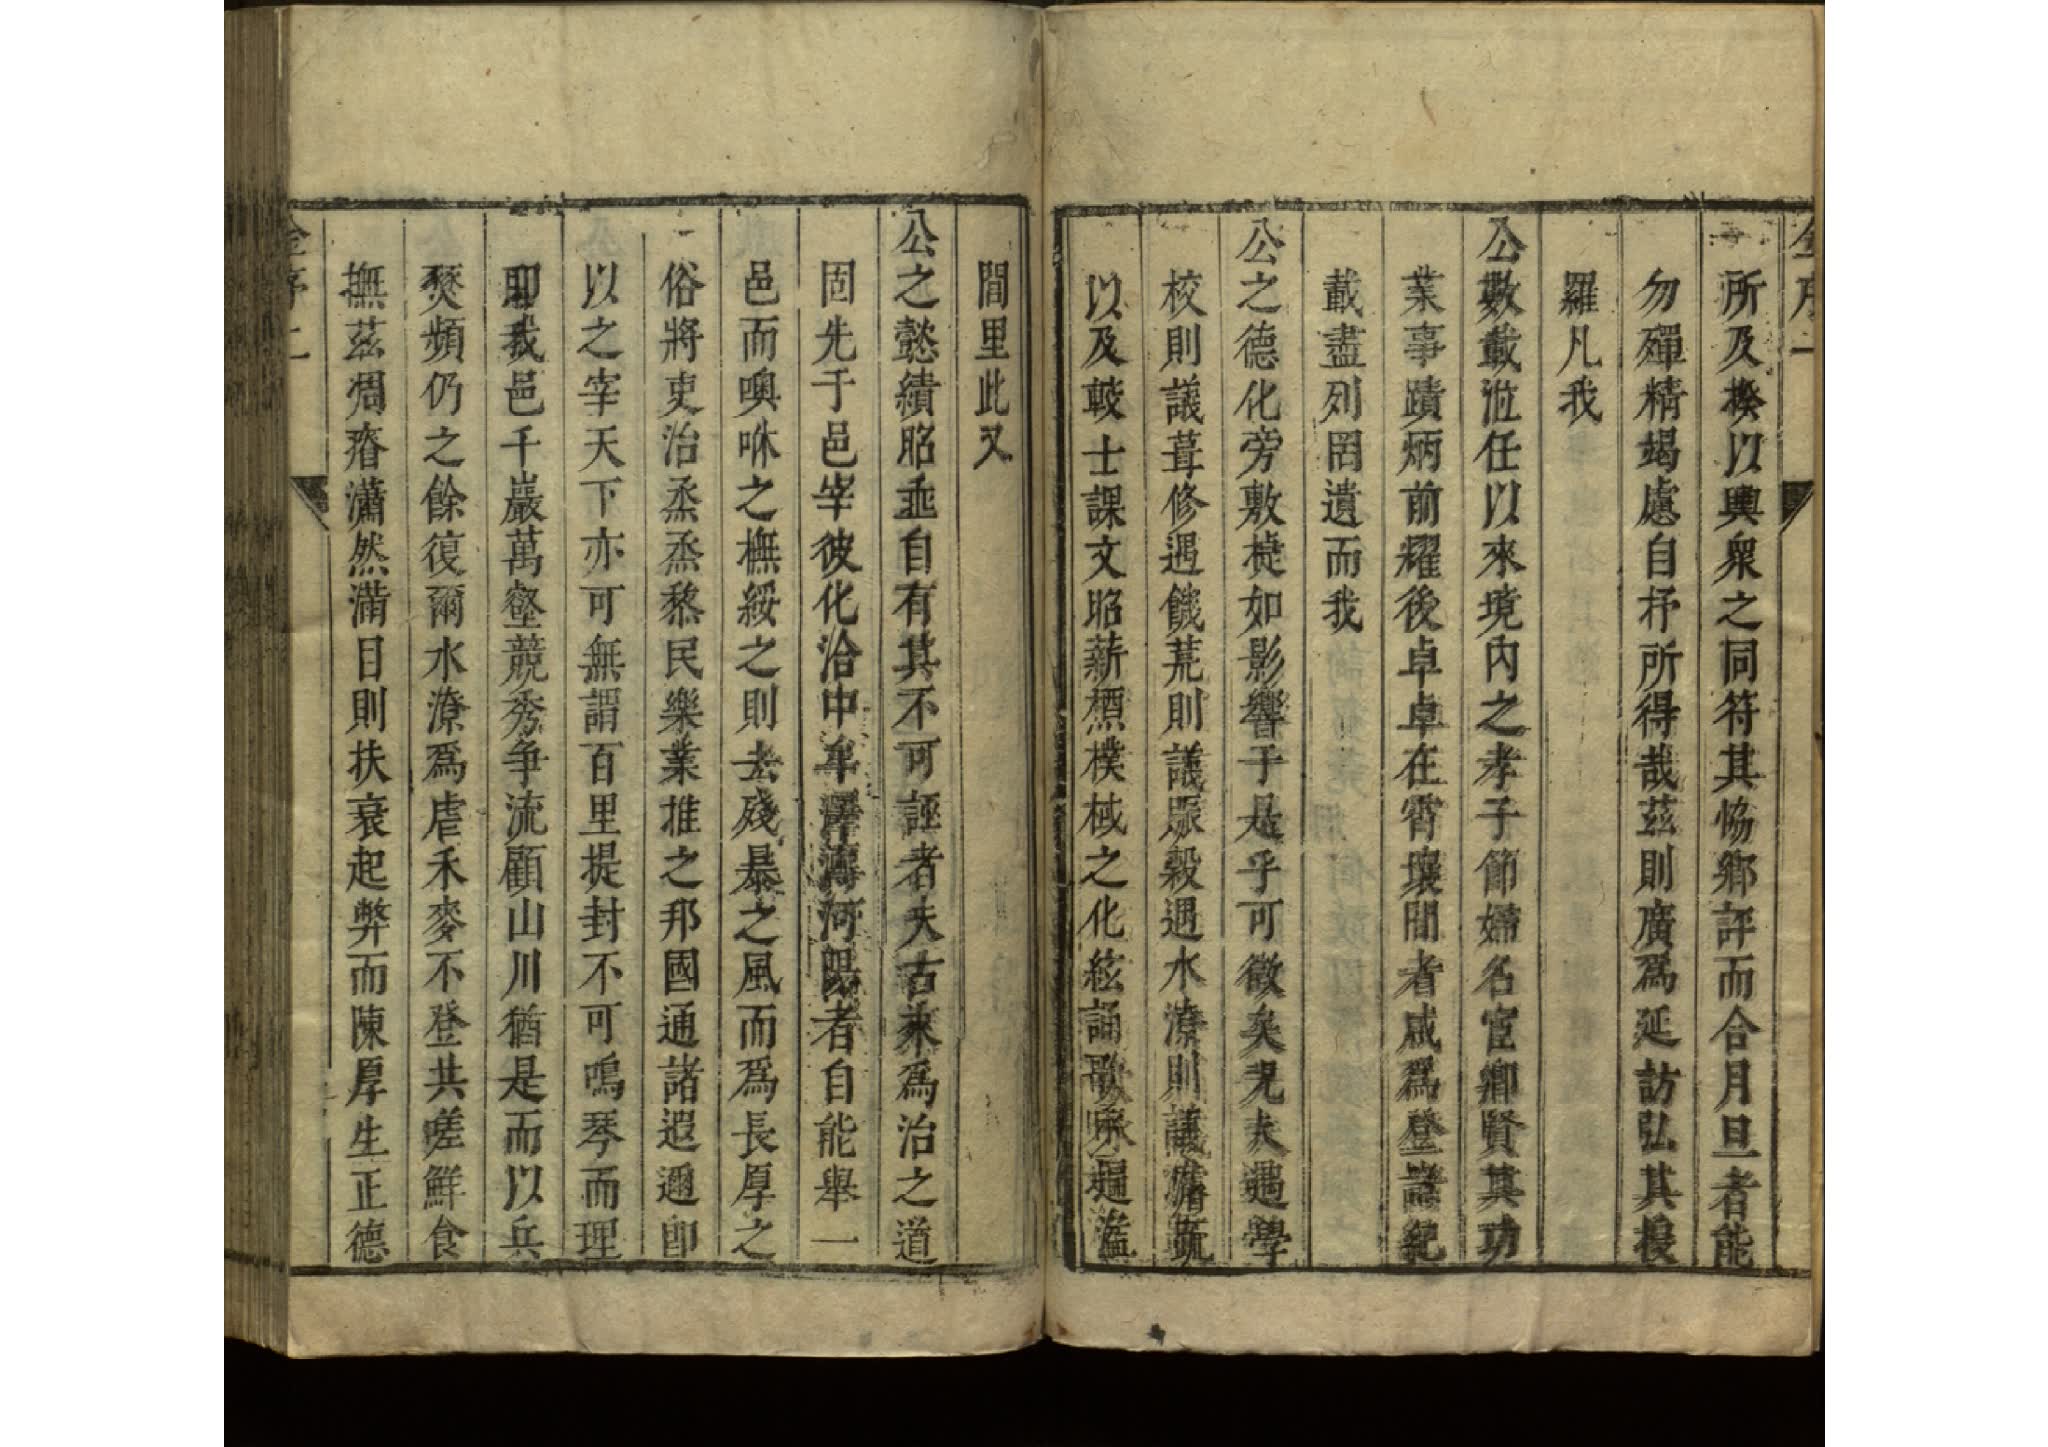 所及揆以輿衆之同符其恊鄉評而合月旦者能
勿殫精竭慮自抒所得哉茲則廣爲延訪弘其搜
羅凡我
公數載涖任以來境內之孝子節婦名宦鄉賢其功
業事蹟炳前耀後卓卓在霄壤間者咸爲登諸紀
載盡列罔遺而我
公之德化旁敷捷如影響于是乎可徵矣況夫遇學
校則議葺修遇饑荒則議賑穀遇水潦則議濬疏
以及較士課文昭薪槱樸棫之化絃誦歌咏遍溢
閭里此又
公之懿績昭垂自有其不可誣者夫古來爲治之道
固先于邑宰彼化洽中牟澤溥河陽者自能舉一
邑而噢咻之撫綏之則去殘暴之風而爲長厚之
俗將吏治烝烝黎民樂業推之邦國通諸遐邇卽
以之宰天下亦可無謂百里提封不可鳴琴而理
卽我邑千巖萬壑競秀争流顧山川猶是而以兵
燹頻仍之餘復爾水潦爲虐禾麥不登共嗟鮮食
撫茲凋瘠瀟然滿目則扶衰起弊而陳厚生正德